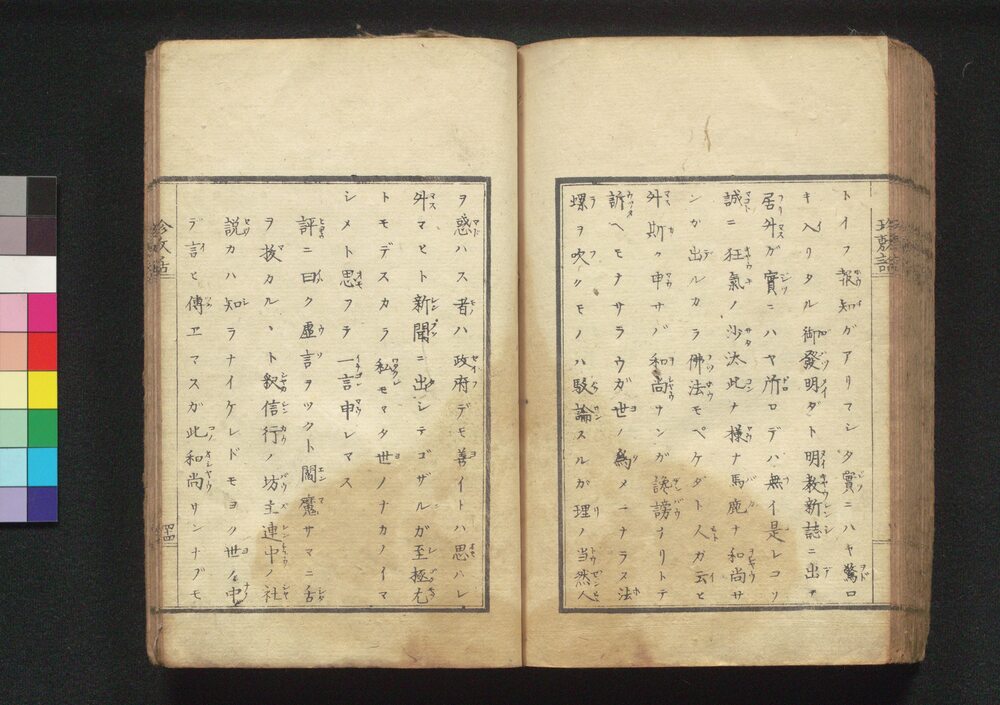 トイフ報知ガアリマシタ實ニハヤ驚ロ
キ入リタル御發明ダト明教新誌ニ出テ
居外ガ實ニハヤ所ロデハ無イ是レコソ
誠ニ狂氣ノ沙汰此ナ様ナ馬鹿ナ和尚サ
ンガ出ルカラ佛法モペケダト人ガ云ヒ
外斯ッ申サバ和尚ナンガ讒謗ナリトテ
訴ヘモナサラウガ世ノ為メーナラス法
螺ヲ吹クモノハ駁論スルガ理ノ当然人
ヲ惑ハス者ハ政府デモ善イトハ思ハレ
外マヒト新聞ニ出シテゴザルガ至極尤
トモデスカラ私モマタ世ノナカノイマ
シメト思フテ一言申レマス
評ニ曰ク虚言ヲツクト閻魔サマニ舌
ヲ拔カルヽト釈信行ノ坊主連中ノ社
説カハ知ラナイケレドモヨク世ノ中
デ言ヒ傳ヱマスガ此和尚サンナブモ
四十四